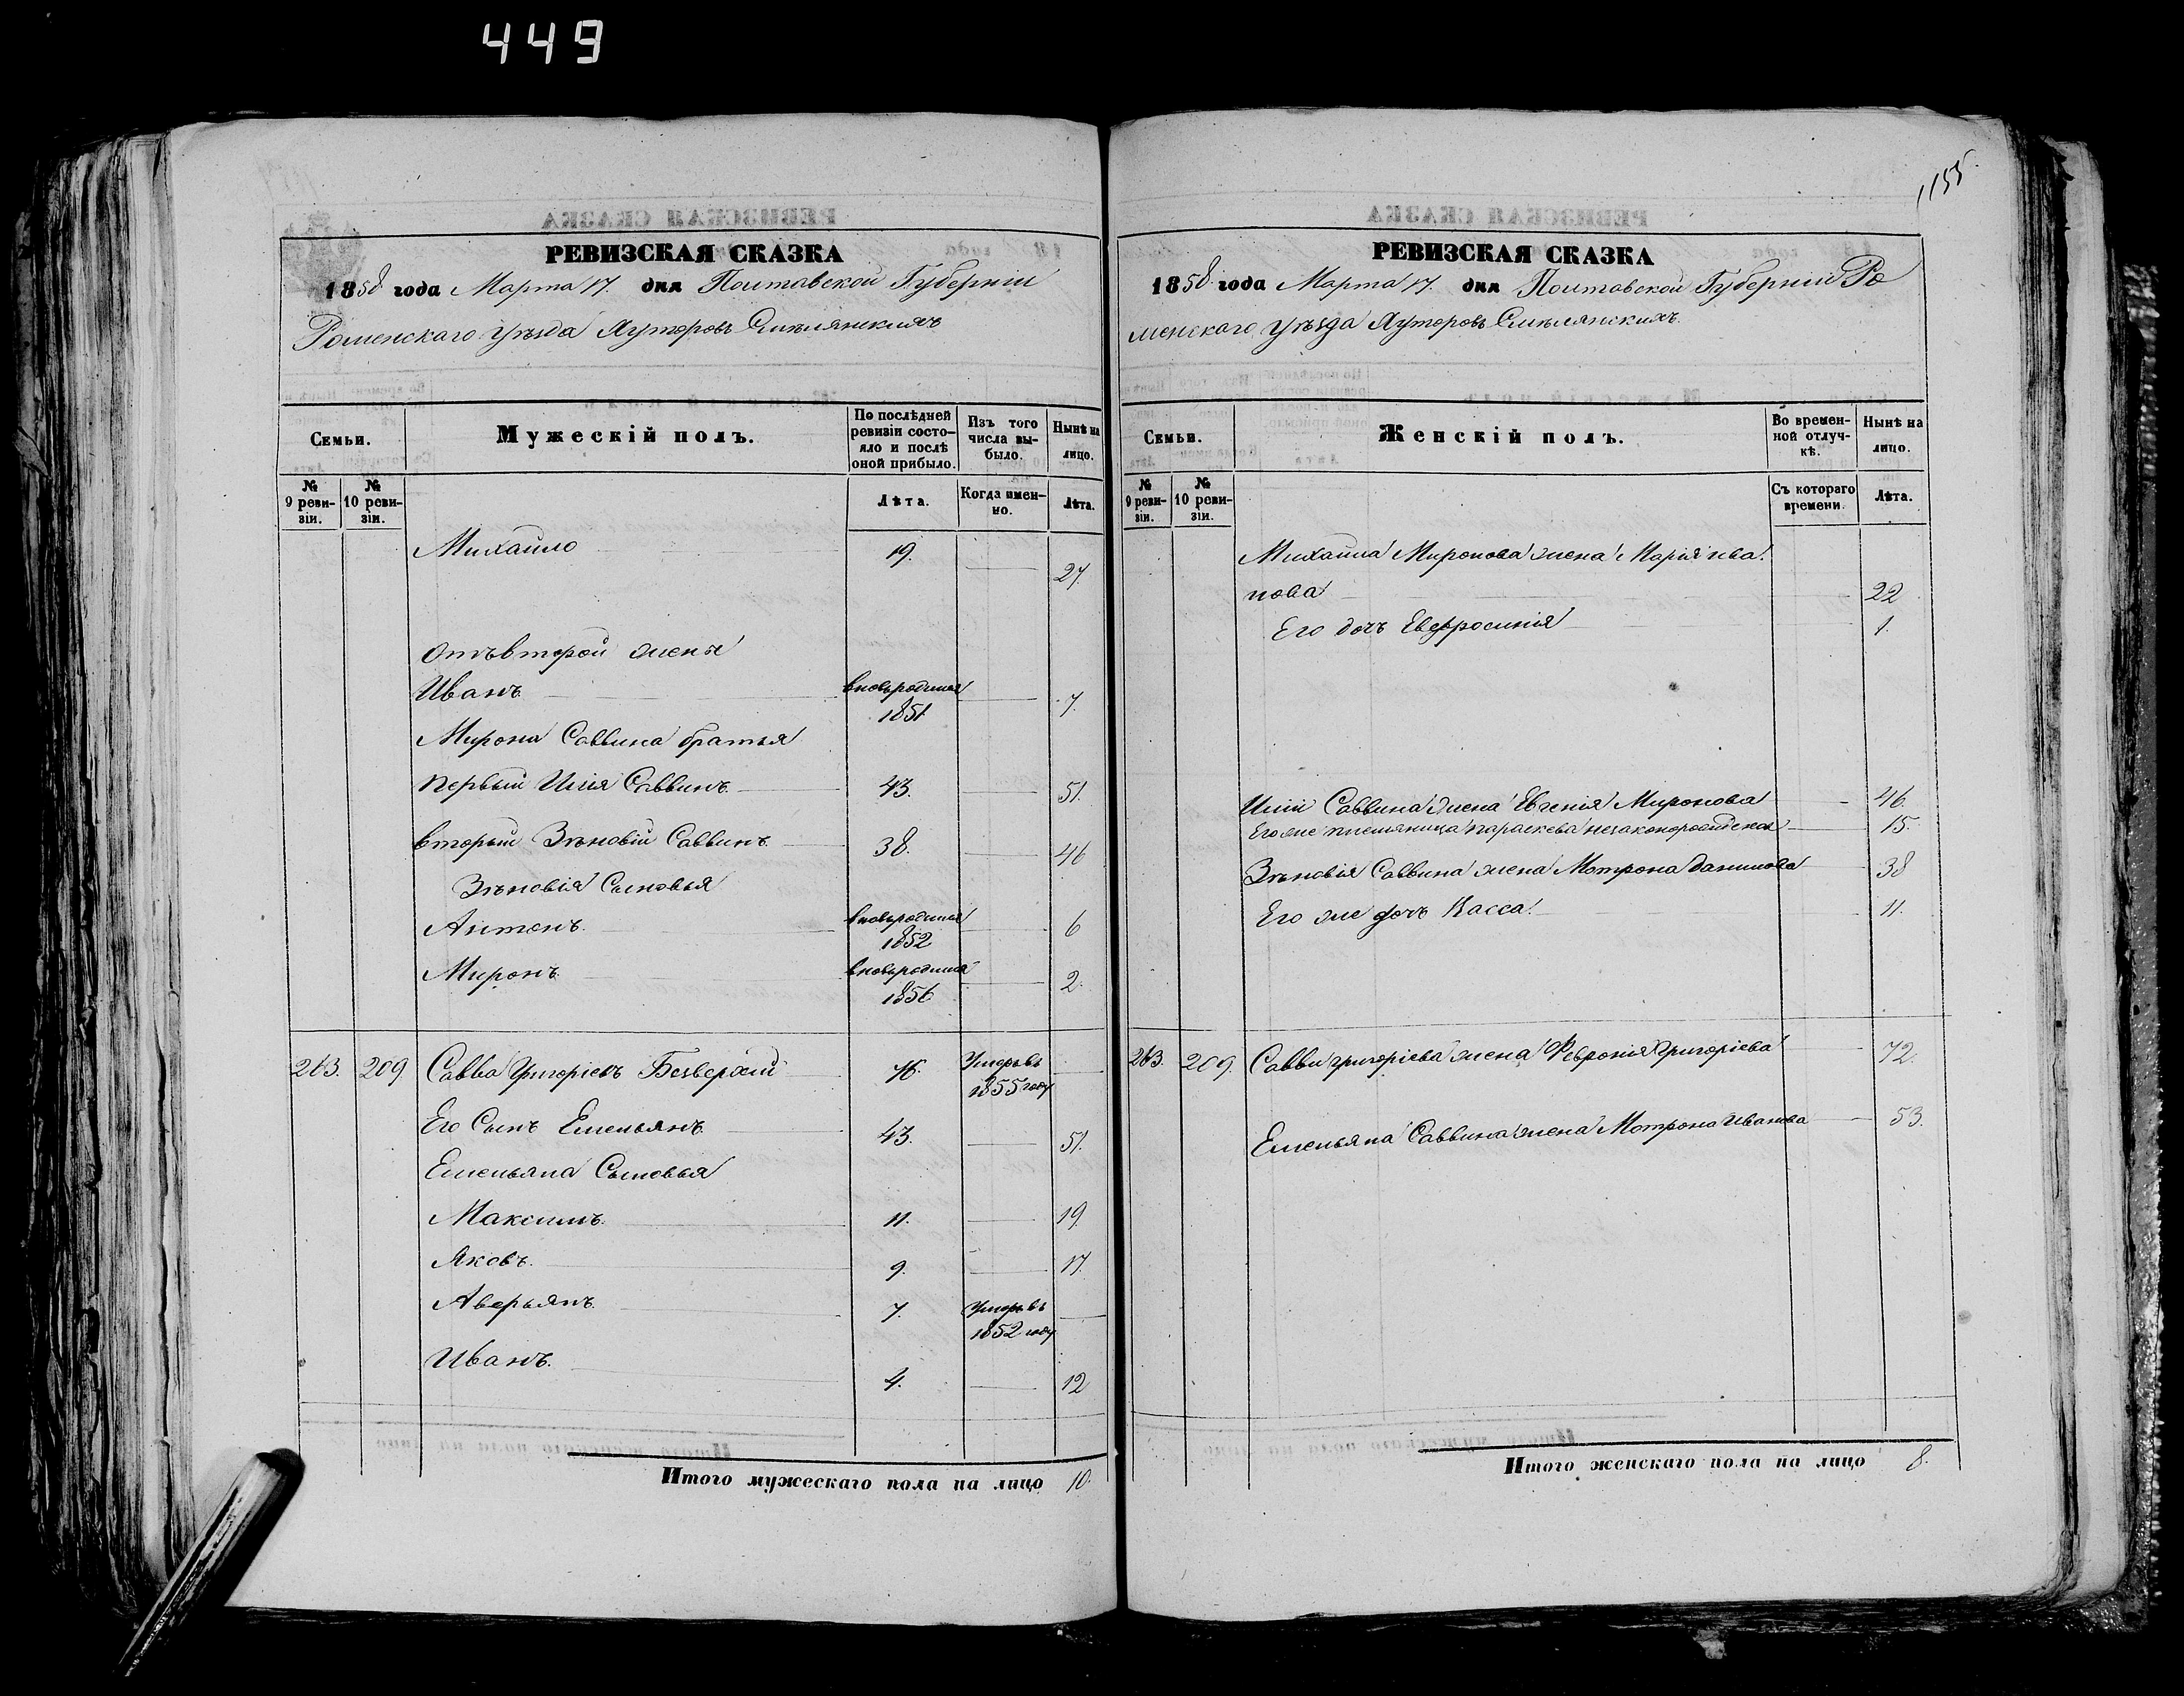 449
РЕВИЗСКАЯ СКАЗКА
1858 года Марта 17. дня Полтавской Губерніи
Роменскаго уѣзда Хуторовъ Смѣлянскихъ
Семьи.
Мужескій полъ.
По послѣдней ревизіи состояло и послѣ оной прибыло.
Изъ того числа выбыло.
Нынѣ на лицо.
№ 9 ревизіи.
№ 10 ревизіи.
Лѣта.
Когда именно.
Лѣта.
Михайло 19. 27.
Отъ второй жены
Иванъ вновьродился 1851 7.
Мирона Саввина братья
первый Илія Саввинъ 43. 51.
вторый Зѣновій Саввинъ 38. 46
Зѣновія Сыновья
Антонъ вновьродился 1852 6
Миронъ вновьродился 1856 2.
263. 209 Савва Григоріевъ Безверхій Умеръ въ 1855 году
Его Сынъ Емельянъ 43. 51.
Емельяна Сыновья
Максимъ 11. 19.
Яковъ. 9. 17.
Аверьянъ 7. Умеръ въ 1852 году
Иванъ. 4. 12
Итого мужескаго пола на лицо 10.
1155.
РЕВИЗСКАЯ СКАЗКА
1858 года Марта 17. дня Полтавской Губерніи Ро
менскаго уѣзда Хуторовъ Смѣлянскихъ.
Семьи.
Женскій полъ.
Во временной отлучкѣ.
Нынѣ на лицо.
№ 9 ревизіи.
№ 10 ревизіи.
Съ котораго времени.
Лѣта.
Михайла Миронова жена Марія Ива.
нова 22
Его дочь Евфросинія 1.
Иліи Саввина жена Евгенія Миронова 46.
Его же племяница Параскева незаконорожденая 15.
Зѣновія Саввина жена Мотрона Данилова 38
Его же дочь Васса. 11.
263. 209. Саввы Григоріева жена Февронія Григоріева 72.
Емельяна Саввина жена Мотрона Иванова 53.
Итого женскаго пола на лицо 8.